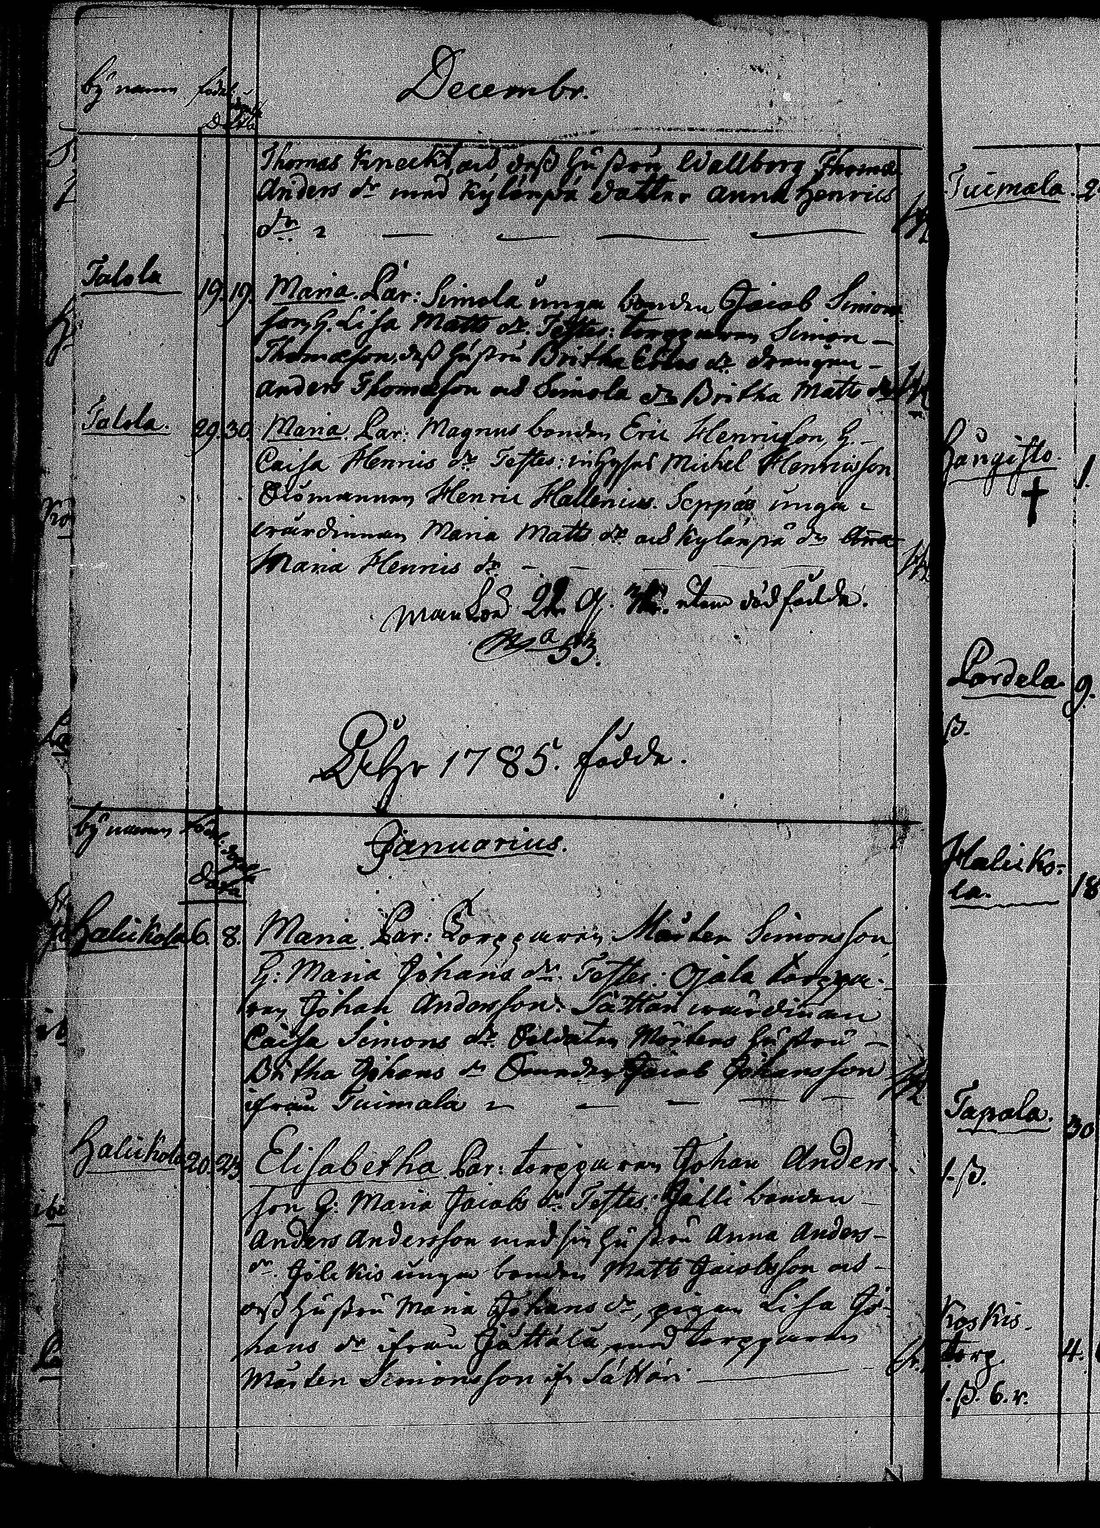 Decembr.
by namn föd.
Thomas Kneckt, och dess hustru Wallborg Thomæ
Anders dr med Kylänpä datter Anna Henrics
dr
Talola 19. 19. Maria. Par: Simola unga bonden Jacob Simons
son, H. Lisa Matts dr. Testes: torpparen Simon
Thomæson, dess hustru Britha dr drängen
Anders Thomæson ad Simola dr Britha Matts dr
Talola. 29. 30. Maria. Par: Magnus bonden Eric Henricson, H.
Caisa Henrics dr Testes: inhyses Michel Henricsson
Henric Hallenius. Seppäs unga
wärdinnan Maria Matts dr och Kylänpä dr Anna
Maria Henrics dr
Man Kön 22. Q. utom död födde.
Sa 53.
Åhr 1785. födde.
by namn
Januarius.
Halickola 6. 8. Maria. Par: Torpparen Mårten Simonsson
H: Maria Johans dr. Testes: Ojala torppa-
ren Johan Andersson. Sattari wärdinnan
Caisa Simons dr. Soldaten Mårtens hustru
Britha Johans dr Jacob Johansson
ifrån Tuimala
Halickola 20. 23. Elisabetha. Par: torpparen Johan Anders-
son H: Maria Jacobs dr. Testes: Jälli bonden
Anders Andersson med sin hustru Anna Anders-
dr. unga bonden Matts Jacobsson och
dess hustru Maria Johans dr, pigan Lisa Jo-
hans dr ifrån med torpparen
Mårten Simonsson ifr. Sattari
Tuimala. 2
Haugisto. 1.
Pordela 9.
ß.
Halicko-
la. 18
Tapala. 30
1. ß.
Koskis
torp. 4.
1. ß. 6. r.